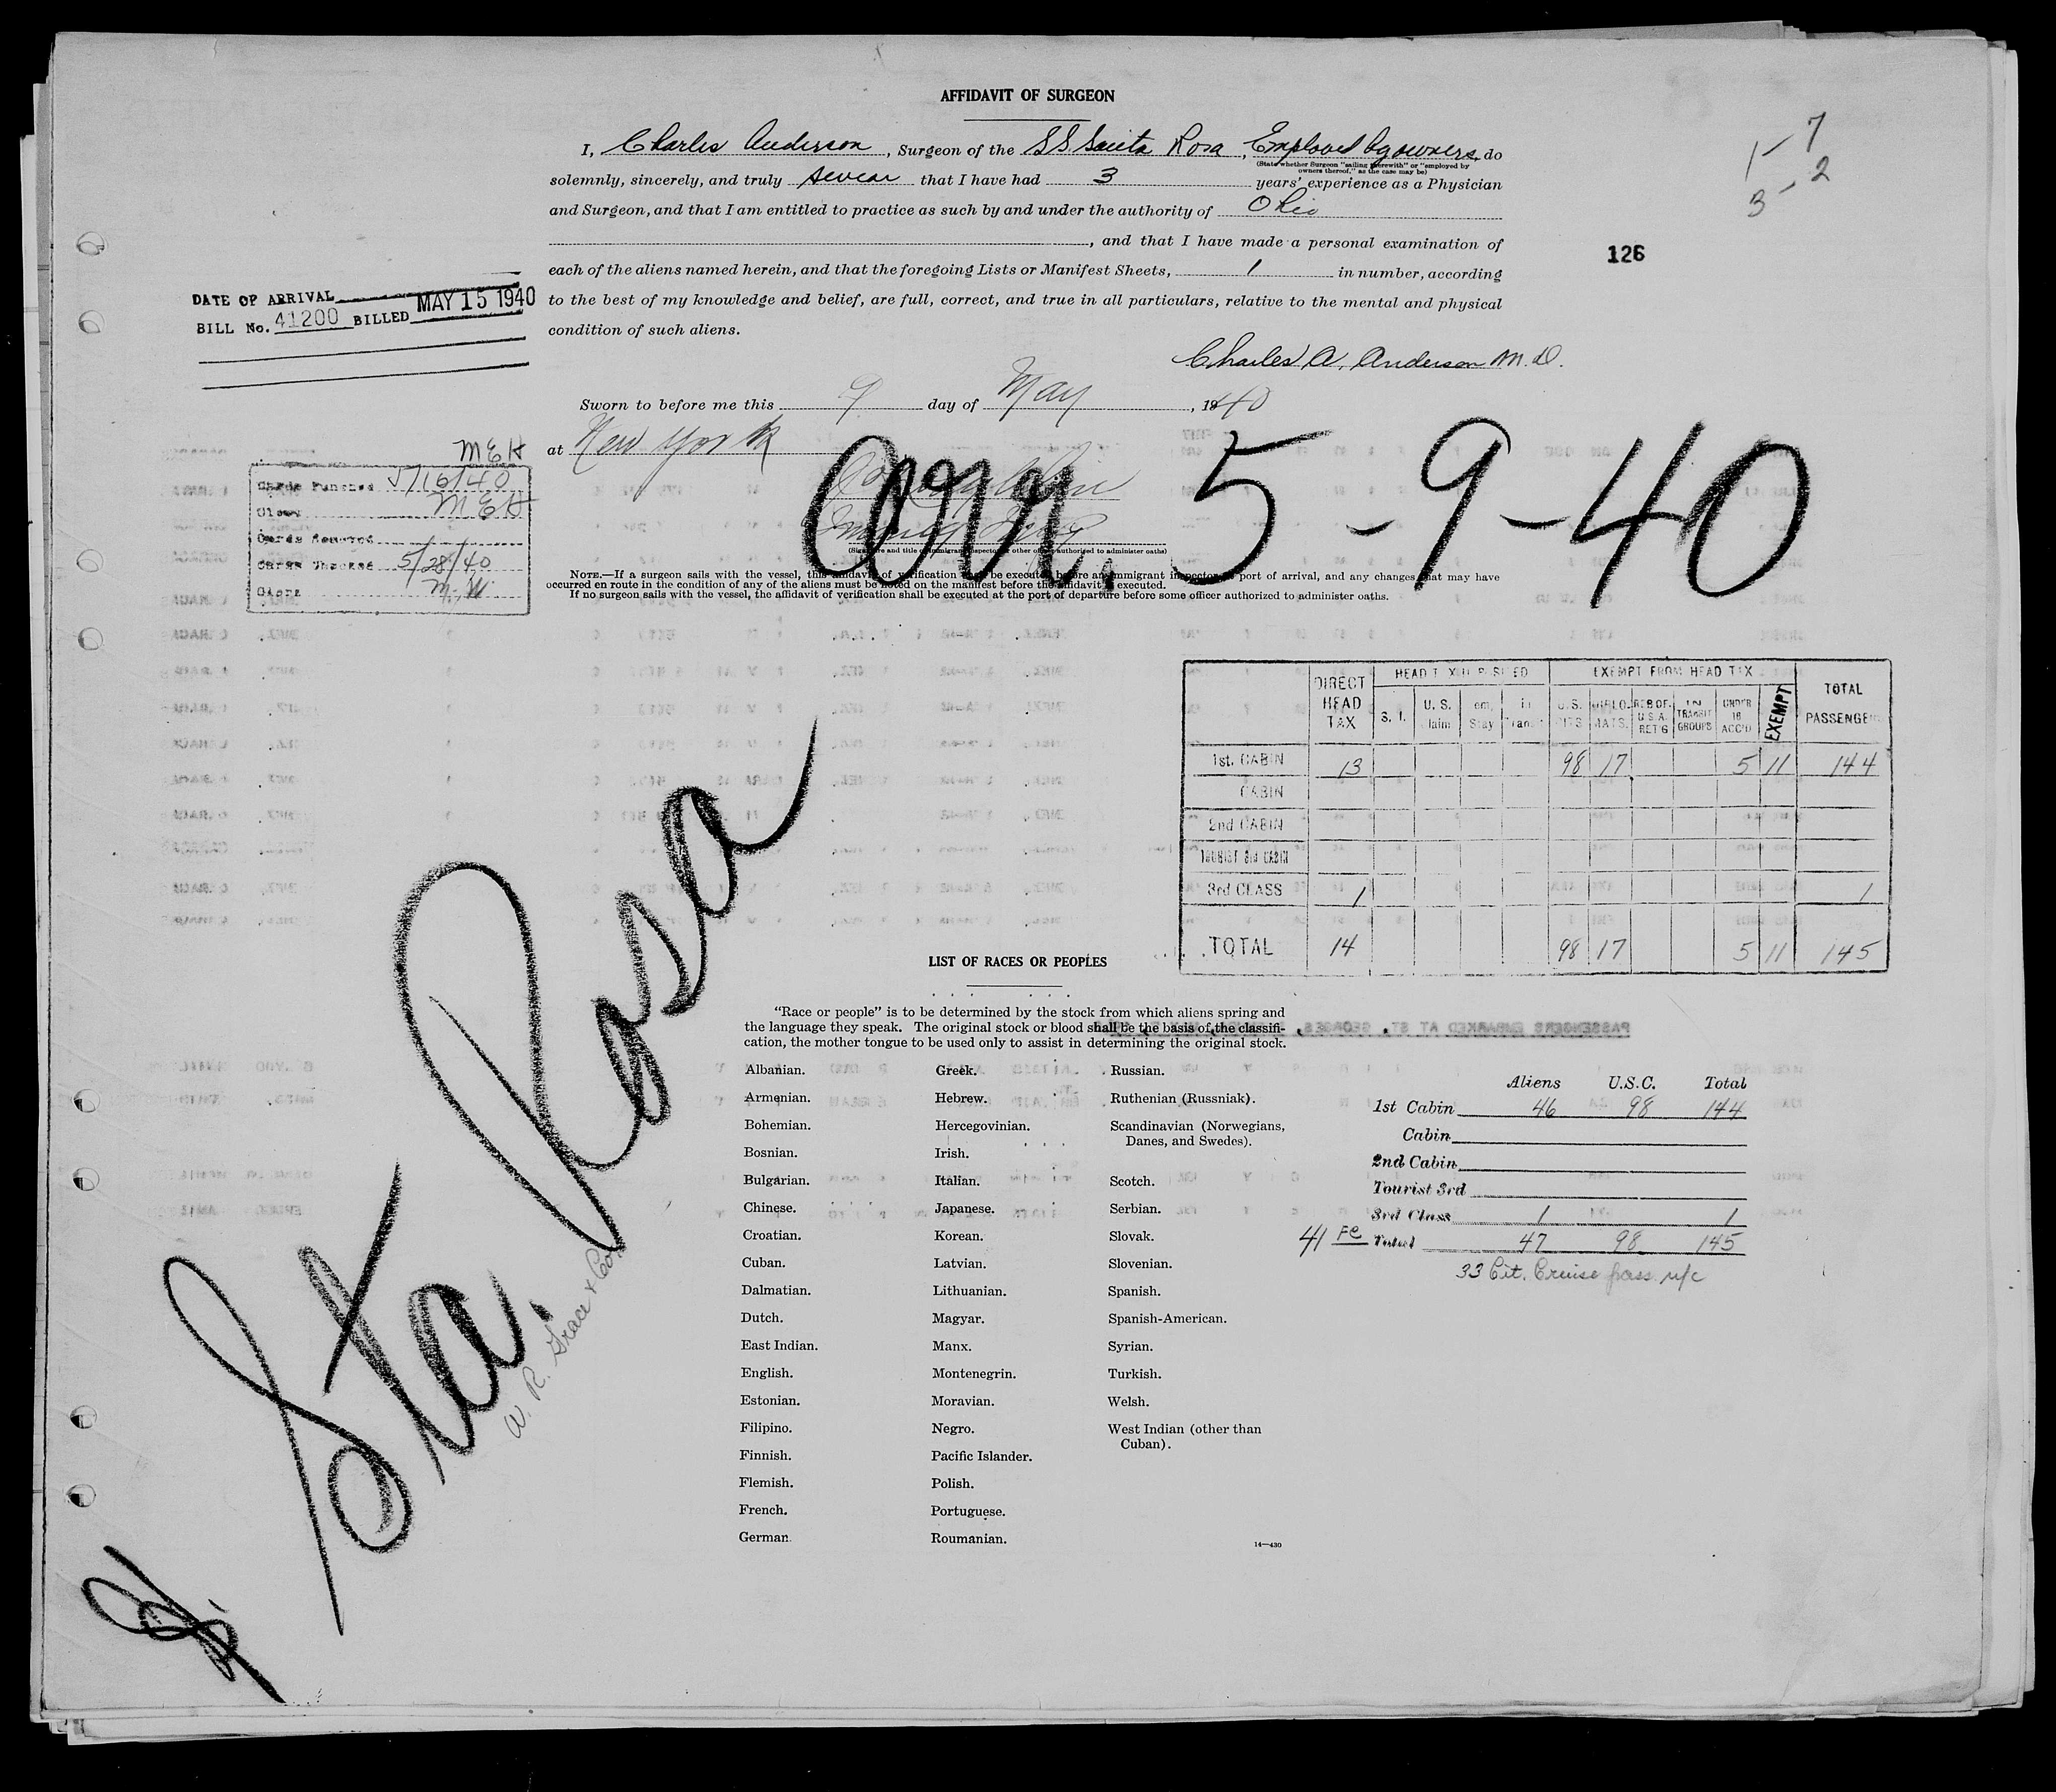 AFFIDAVIT OF SURGEON
I, Charles Anderson, Surgeon of the SS Santa Rosa, Employed by owners, do
(State whether Surgeon "sailing therewith" or "employed by
owners thereof," as the case may be)
solemnly, sincerely, and truly swear that I have had 3 years' experience as a Physician
and Surgeon, and that I am entitled to practice as such by and under the authority of Ohio
, and that I have made a personal examination of
each of the aliens named herein, and that the foregoing Lists or Manifest Sheets, 1 in number, according
to the best of my knowledge and belief, are full, correct, and true in all particulars, relative to the mental and physical
condition of such aliens.
Charles A. Anderson M.D.
1-7
3-2
126
DATE OF ARRIVAL MAY 15 1940
BILL No. 41200 BILLED
Sworn to before me this 9 day of May, 1940
at New York
arr. 5-9-40
(Signature and title of immigrant inspector or other officer authorized to administer oaths)
MEH
Cards Punched 5/16/40
MEH
Cards Checked 5/28/40
M.W.
NOTE.—If a surgeon sails with the vessel, this affidavit of verification must be executed before an immigrant inspector at port of arrival, and any changes that may have
occurred en route in the condition of any of the aliens must be noted on the manifest before the affidavit is executed.
If no surgeon sails with the vessel, the affidavit of verification shall be executed at the port of departure before some officer authorized to administer oaths.
DIRECT HEAD TAX EXEMPT FROM HEAD TAX TOTAL PASSENGERS
S. I. U. S. Claim Stay Trans. U.S. CITS DIPLOMATS. RES OF U.S.A. RET'G IN TRANSIT GROUPS UNDER 16 ACC'D EXEMPT
1st. CABIN 13 98 17 5 11 144
CABIN
2nd CABIN
TOURIST 3rd CABIN
3rd CLASS 1 1
TOTAL 14 98 17 5 11 145
Sta. Rosa
W. R. Grace & Co.
LIST OF RACES OR PEOPLES
"Race or people" is to be determined by the stock from which aliens spring and
the language they speak. The original stock or blood shall be the basis of the classifi-
cation, the mother tongue to be used only to assist in determining the original stock.
Albanian.
Armenian.
Bohemian.
Bosnian.
Bulgarian.
Chinese.
Croatian.
Cuban.
Dalmatian.
Dutch.
East Indian.
English.
Estonian.
Filipino.
Finnish.
Flemish.
French.
German.
Greek.
Hebrew.
Hercegovinian.
Irish.
Italian.
Japanese.
Korean.
Latvian.
Lithuanian.
Magyar.
Manx.
Montenegrin.
Moravian.
Negro.
Pacific Islander.
Polish.
Portuguese.
Roumanian.
Russian.
Ruthenian (Russniak).
Scandinavian (Norwegians,
Danes, and Swedes).
Scotch.
Serbian.
Slovak.
Slovenian.
Spanish.
Spanish-American.
Syrian.
Turkish.
Welsh.
West Indian (other than
Cuban).
14—430
Aliens U.S.C. Total
1st Cabin 46 98 144
Cabin
2nd Cabin
Tourist 3rd
3rd Class 1 1
41 Fe Total 47 98 145
33 Cit. Cruise pass. n/c